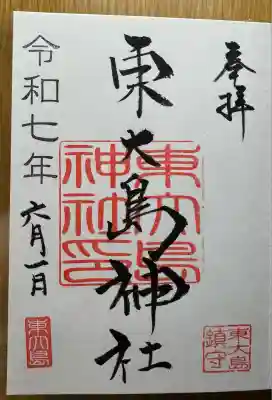 奉拝
東大島神社
東大島神社印
令和七年
六月一日
東大島鎮守
東大島